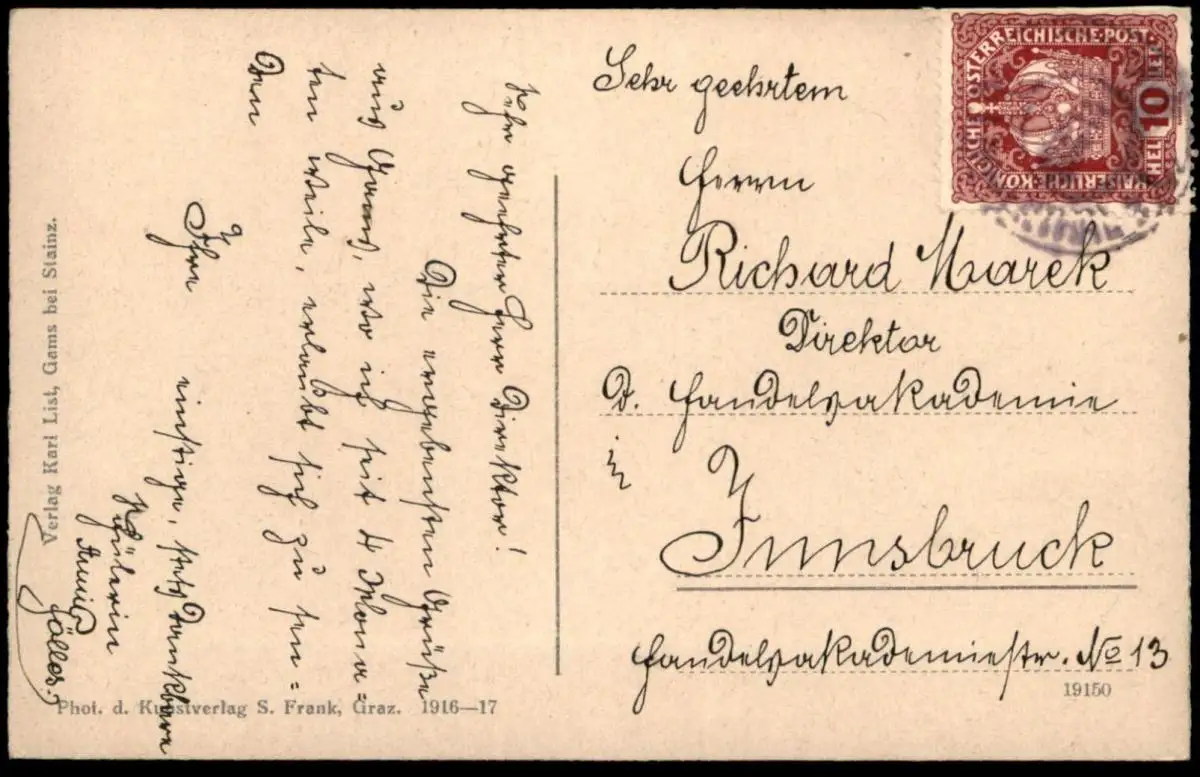 Sehr geehrter Herr Direktor!
Die ergebensten Grüße
aus Gams, wo ich seit 4 Mona=
ten weile, erlaubt sich zu sen=
den
Ihre
einstige, stets dankbare
Schülerin
Göller.
Sehr geehrtem
Herrn
Richard Marek
Direktor
d. Handelsakademie
in
Innsbruck
Handelsakademiestr. No 13
19150
KAISERLICHE KÖNIGLICHE ÖSTERREICHISCHE POST
10
HELLER
Verlag Karl List, Gams bei Stainz.
Phot. d. Kunstverlag S. Frank, Graz. 1916—17